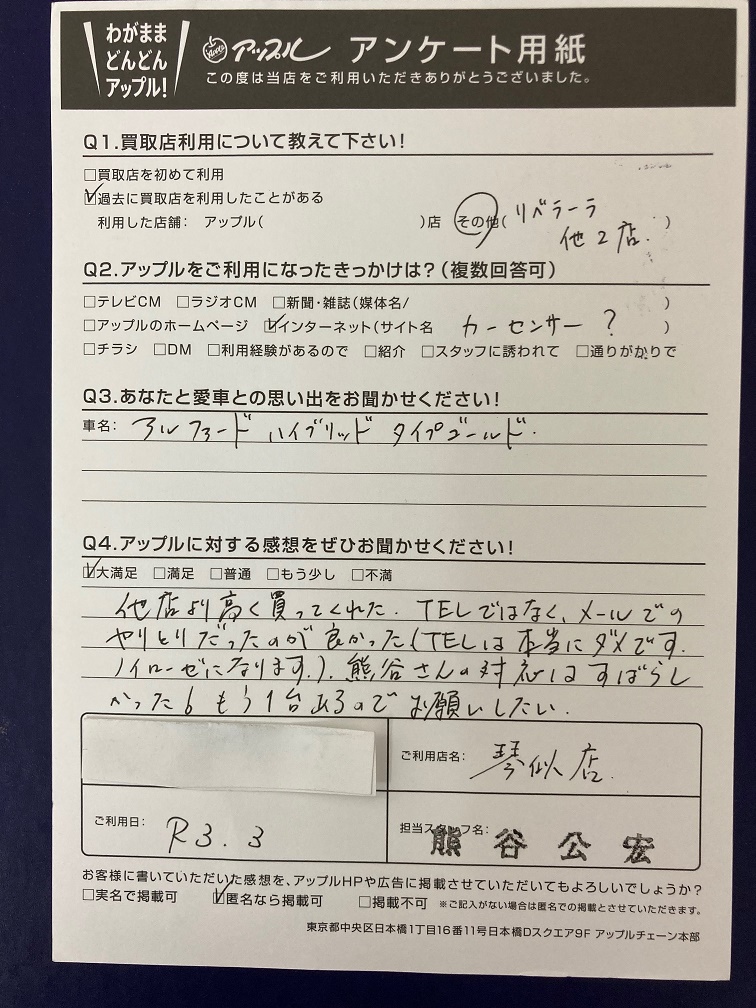 わがまま
どんどん
アップル!
アップル アンケート用紙
この度は当店をご利用いただきありがとうございました。
Q1.買取店利用について教えて下さい!
□買取店を初めて利用
☑過去に買取店を利用したことがある
利用した店舗: アップル( )店 その他( リベラーラ
他2店. )
Q2.アップルをご利用になったきっかけは?(複数回答可)
□テレビCM □ラジオCM □新聞・雑誌(媒体名/ )
□アップルのホームページ ☑インターネット(サイト名 カーセンサー? )
□チラシ □DM □利用経験があるので □紹介 □スタッフに誘われて □通りがかりで
Q3.あなたと愛車との思い出をお聞かせください!
車名: アルファード ハイブリッド タイプゴールド.
Q4.アップルに対する感想をぜひお聞かせください!
☑大満足 □満足 □普通 □もう少し □不満
他店より高く買ってくれた. TELではなく、メールでの
やりとりだったのが良かった(TELは本当にダメです.
ノイローゼになります.). 熊谷さんの対応はすばらし
かった。もう1台あるのでお願いしたい.
ご利用店名: 琴似店.
ご利用日: R3.3
担当スタッフ名: 熊谷公宏
お客様に書いていただいた感想を、アップルHPや広告に掲載させていただいてもよろしいでしょうか?
□実名で掲載可 ☑匿名なら掲載可 □掲載不可 ※ご記入がない場合は匿名での掲載とさせていただきます。
東京都中央区日本橋1丁目16番11号日本橋Dスクエア9F アップルチェーン本部